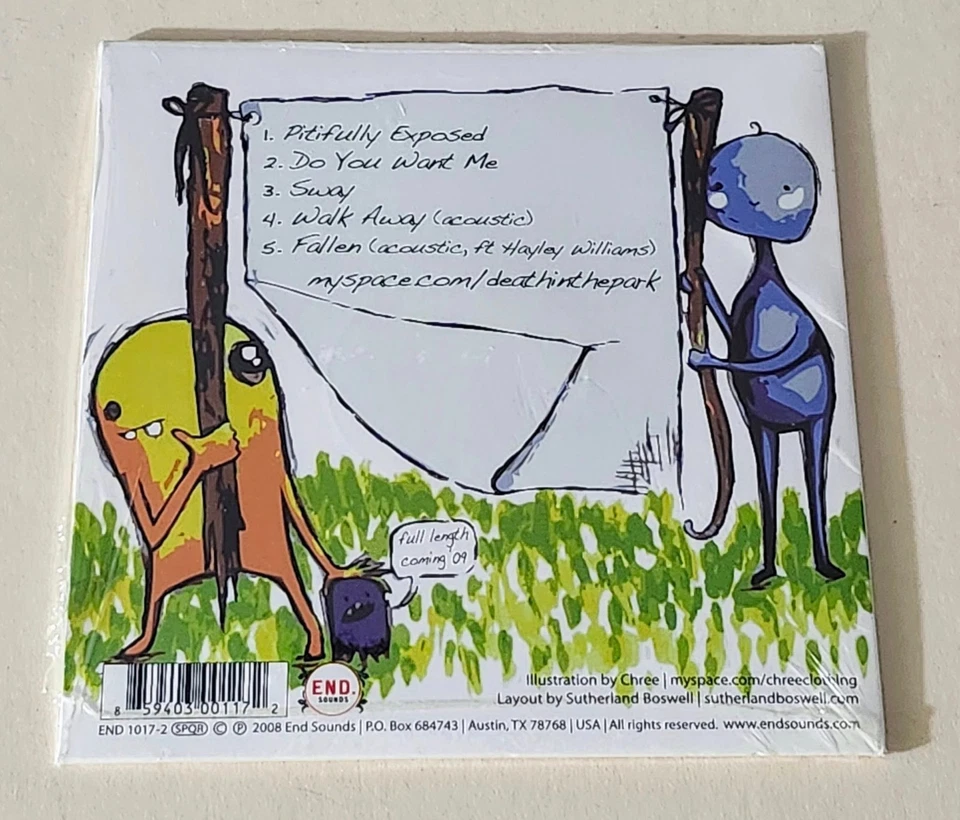 1. Pitifully Exposed
2. Do You Want Me
3. Sway
4. Walk Away (acoustic)
5. Fallen (acoustic, ft Hayley Williams)
myspace.com/deathinthepark
full length
coming '09
Illustration by Chree | myspace.com/chreeclothing
Layout by Sutherland Boswell | sutherlandboswell.com
8 59403 00117 2
END.
SOUNDS
END 1017-2 SPQR © ℗ 2008 End Sounds | P.O. Box 684743 | Austin, TX 78768 | USA | All rights reserved. www.endsounds.com